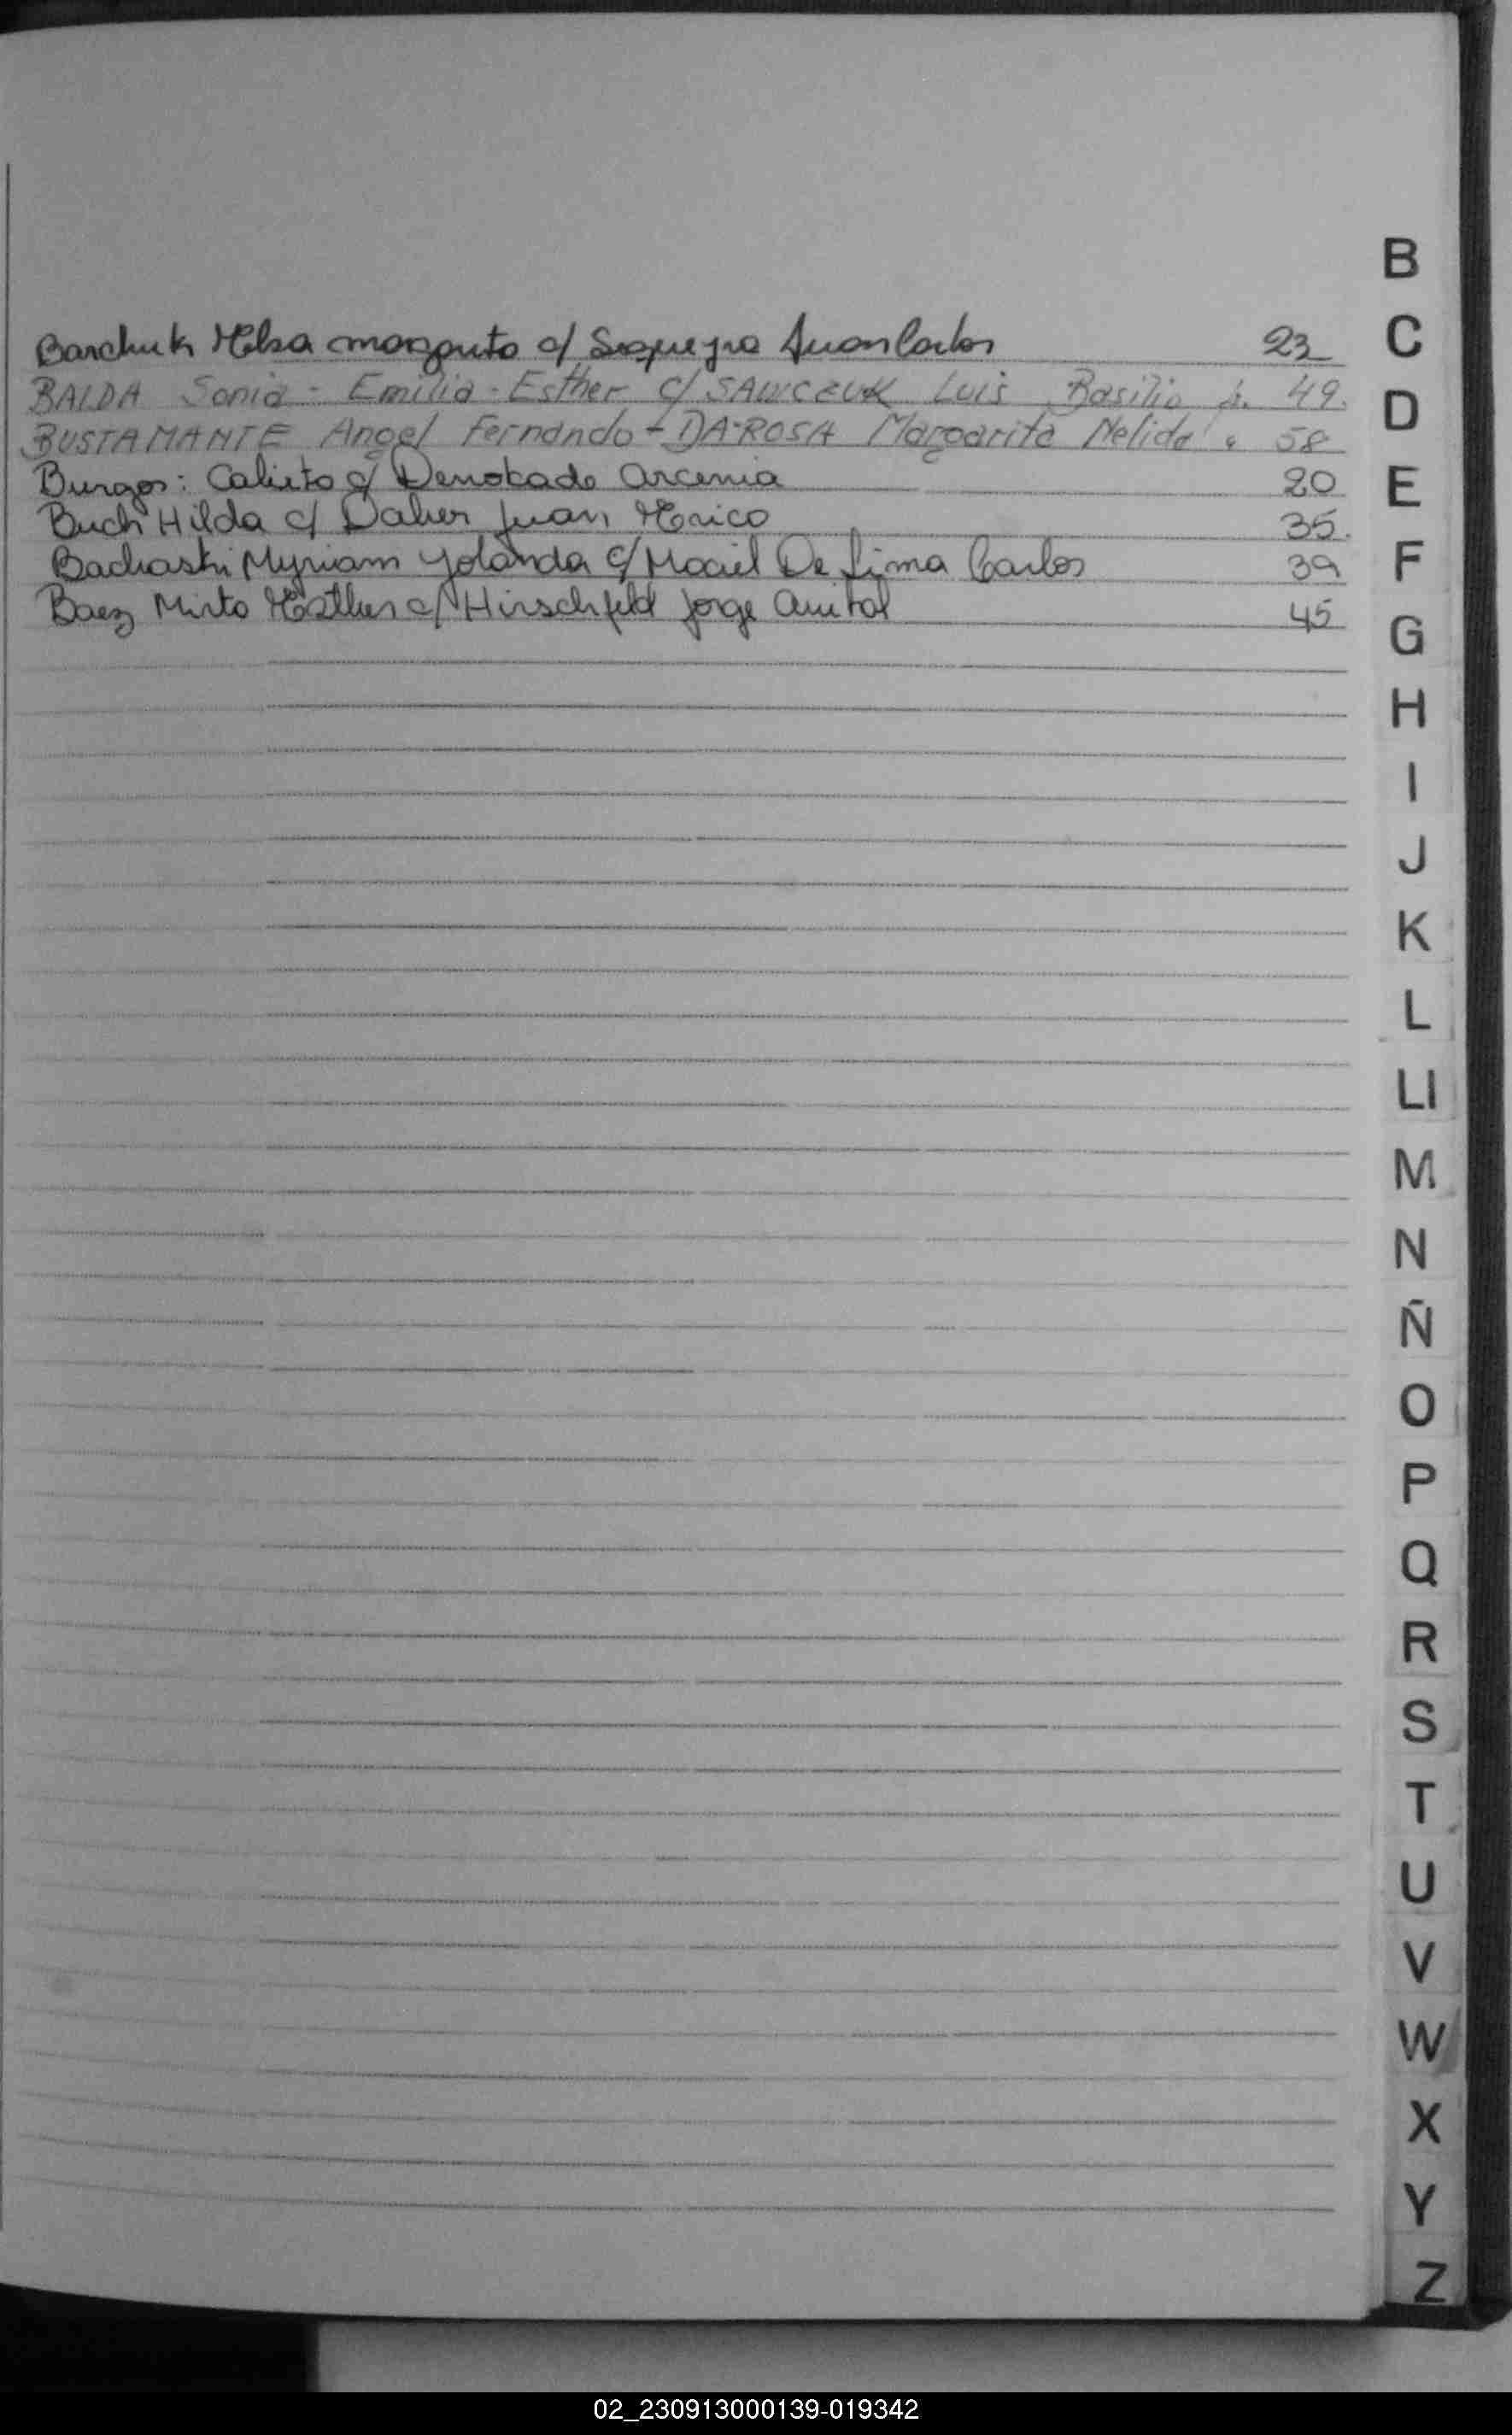 Barchuk Elsa Margarita c/ Juan Carlos 23
BALDA Sonia - Emilia - Esther c/ SAWCZUK Luis Basilio 49.
BUSTAMANTE Angel Fernando - DA-ROSA Margarita Nelida 58
Burgos: Calixto c/ Arcenia 20
Buch Hilda c/ Daher Juan Erico 35.
Myriam Yolanda c/ Maciel De Lima Carlos 39
Baez Mirta Esther c/ Hirschfeld Jorge 45
B
C
D
E
F
G
H
I
J
K
L
Ll
M
N
Ñ
O
P
Q
R
S
T
U
V
W
X
Y
Z
02_230913000139-019342